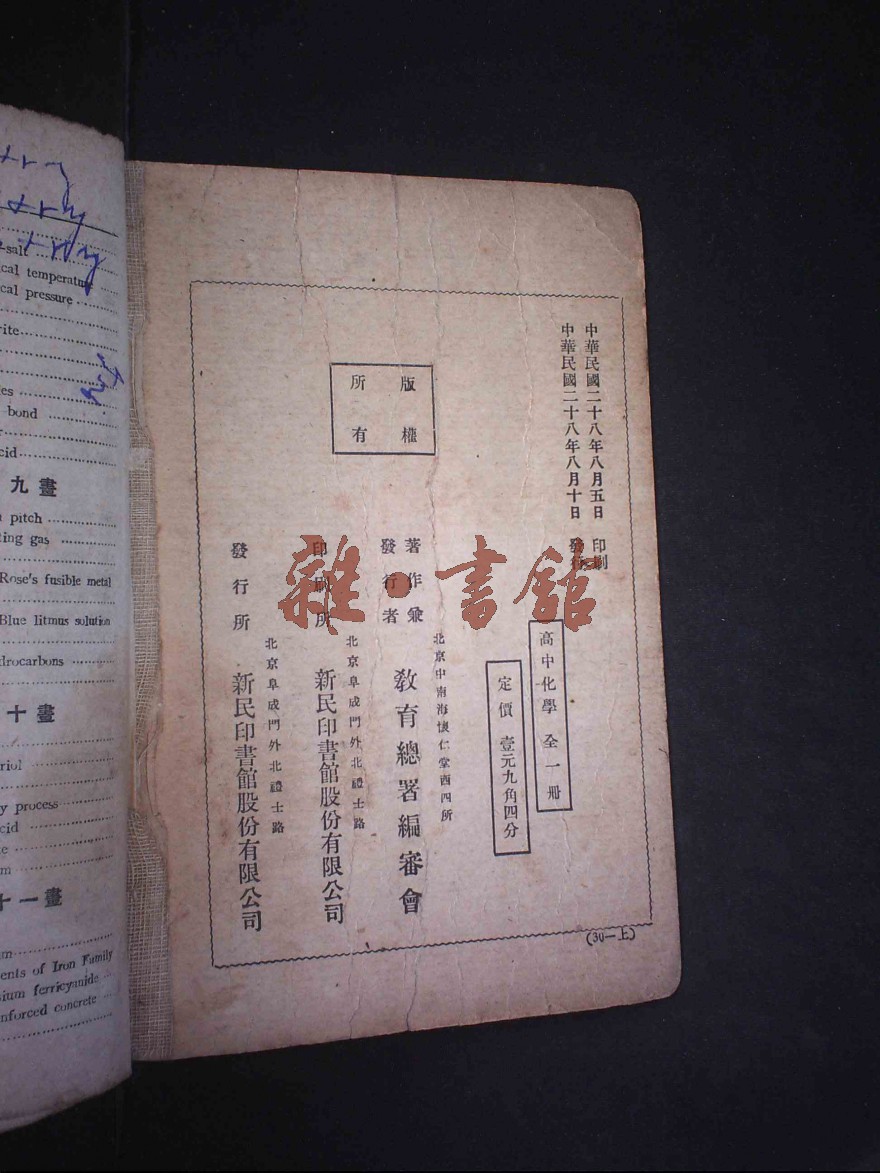 中華民國二十八年八月五日 印刷
中華民國二十八年八月十日 發行
高中化學 全一冊
定價 壹元九角四分
版權
所有
北京中南海懷仁堂西四所
著作兼
發行者
教育總署編審會
北京阜成門外北禮士路
印刷所 新民印書館股份有限公司
北京阜成門外北禮士路
發行所 新民印書館股份有限公司
(30—上)
雜·書館
-salt
cal temperature
cal pressure
rite
es
bond
cid
九畫
pitch
ting gas
Rose's fusible metal
Blue litmus solution
drocarbons
十畫
riol
y process
cid
te
m
十一畫
um
ents of Iron Family
sium ferricyanide
nforced concrete